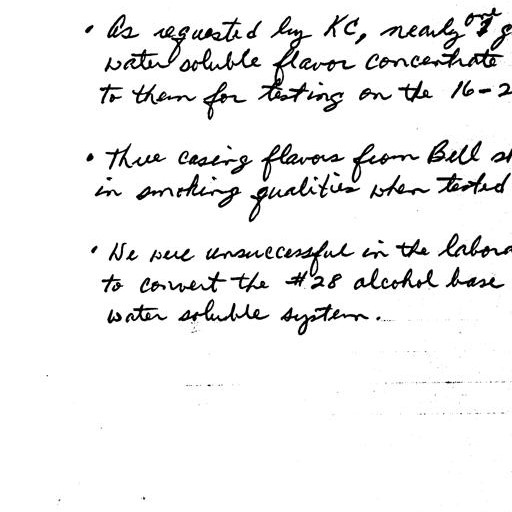 • As requested by KC, nearly one g
water soluble flavor concentrate
to them for testing on the 16-2
• Three casing flavors from Bell sh
in smoking qualities when tested
• We were unsuccessful in the labora
to convert the #28 alcohol base
water soluble system.